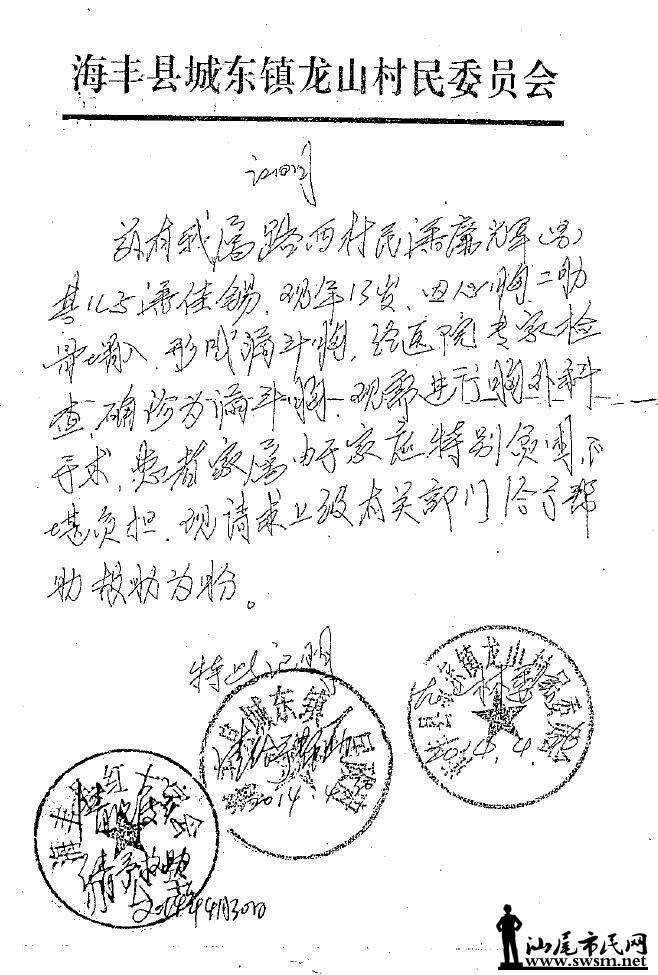 海丰县城东镇龙山村民委员会
证明
兹有我属路西村民潘廉辉(男)
其儿子潘佳锡，现年13岁，因心胸二肋
骨塌入，形成漏斗胸，经医院专家检
查，确诊为漏斗胸，现需进行胸外科
手术，患者家属由于家庭特别贫困，不
堪负担，现请求上级有关部门给予帮
助救助为盼。
特此证明
城东镇
2014.4
镇龙山村民委员会
村委
2014.4
海丰县红十字会
请予救助
4月30日
汕尾市民网
www.swsm.net